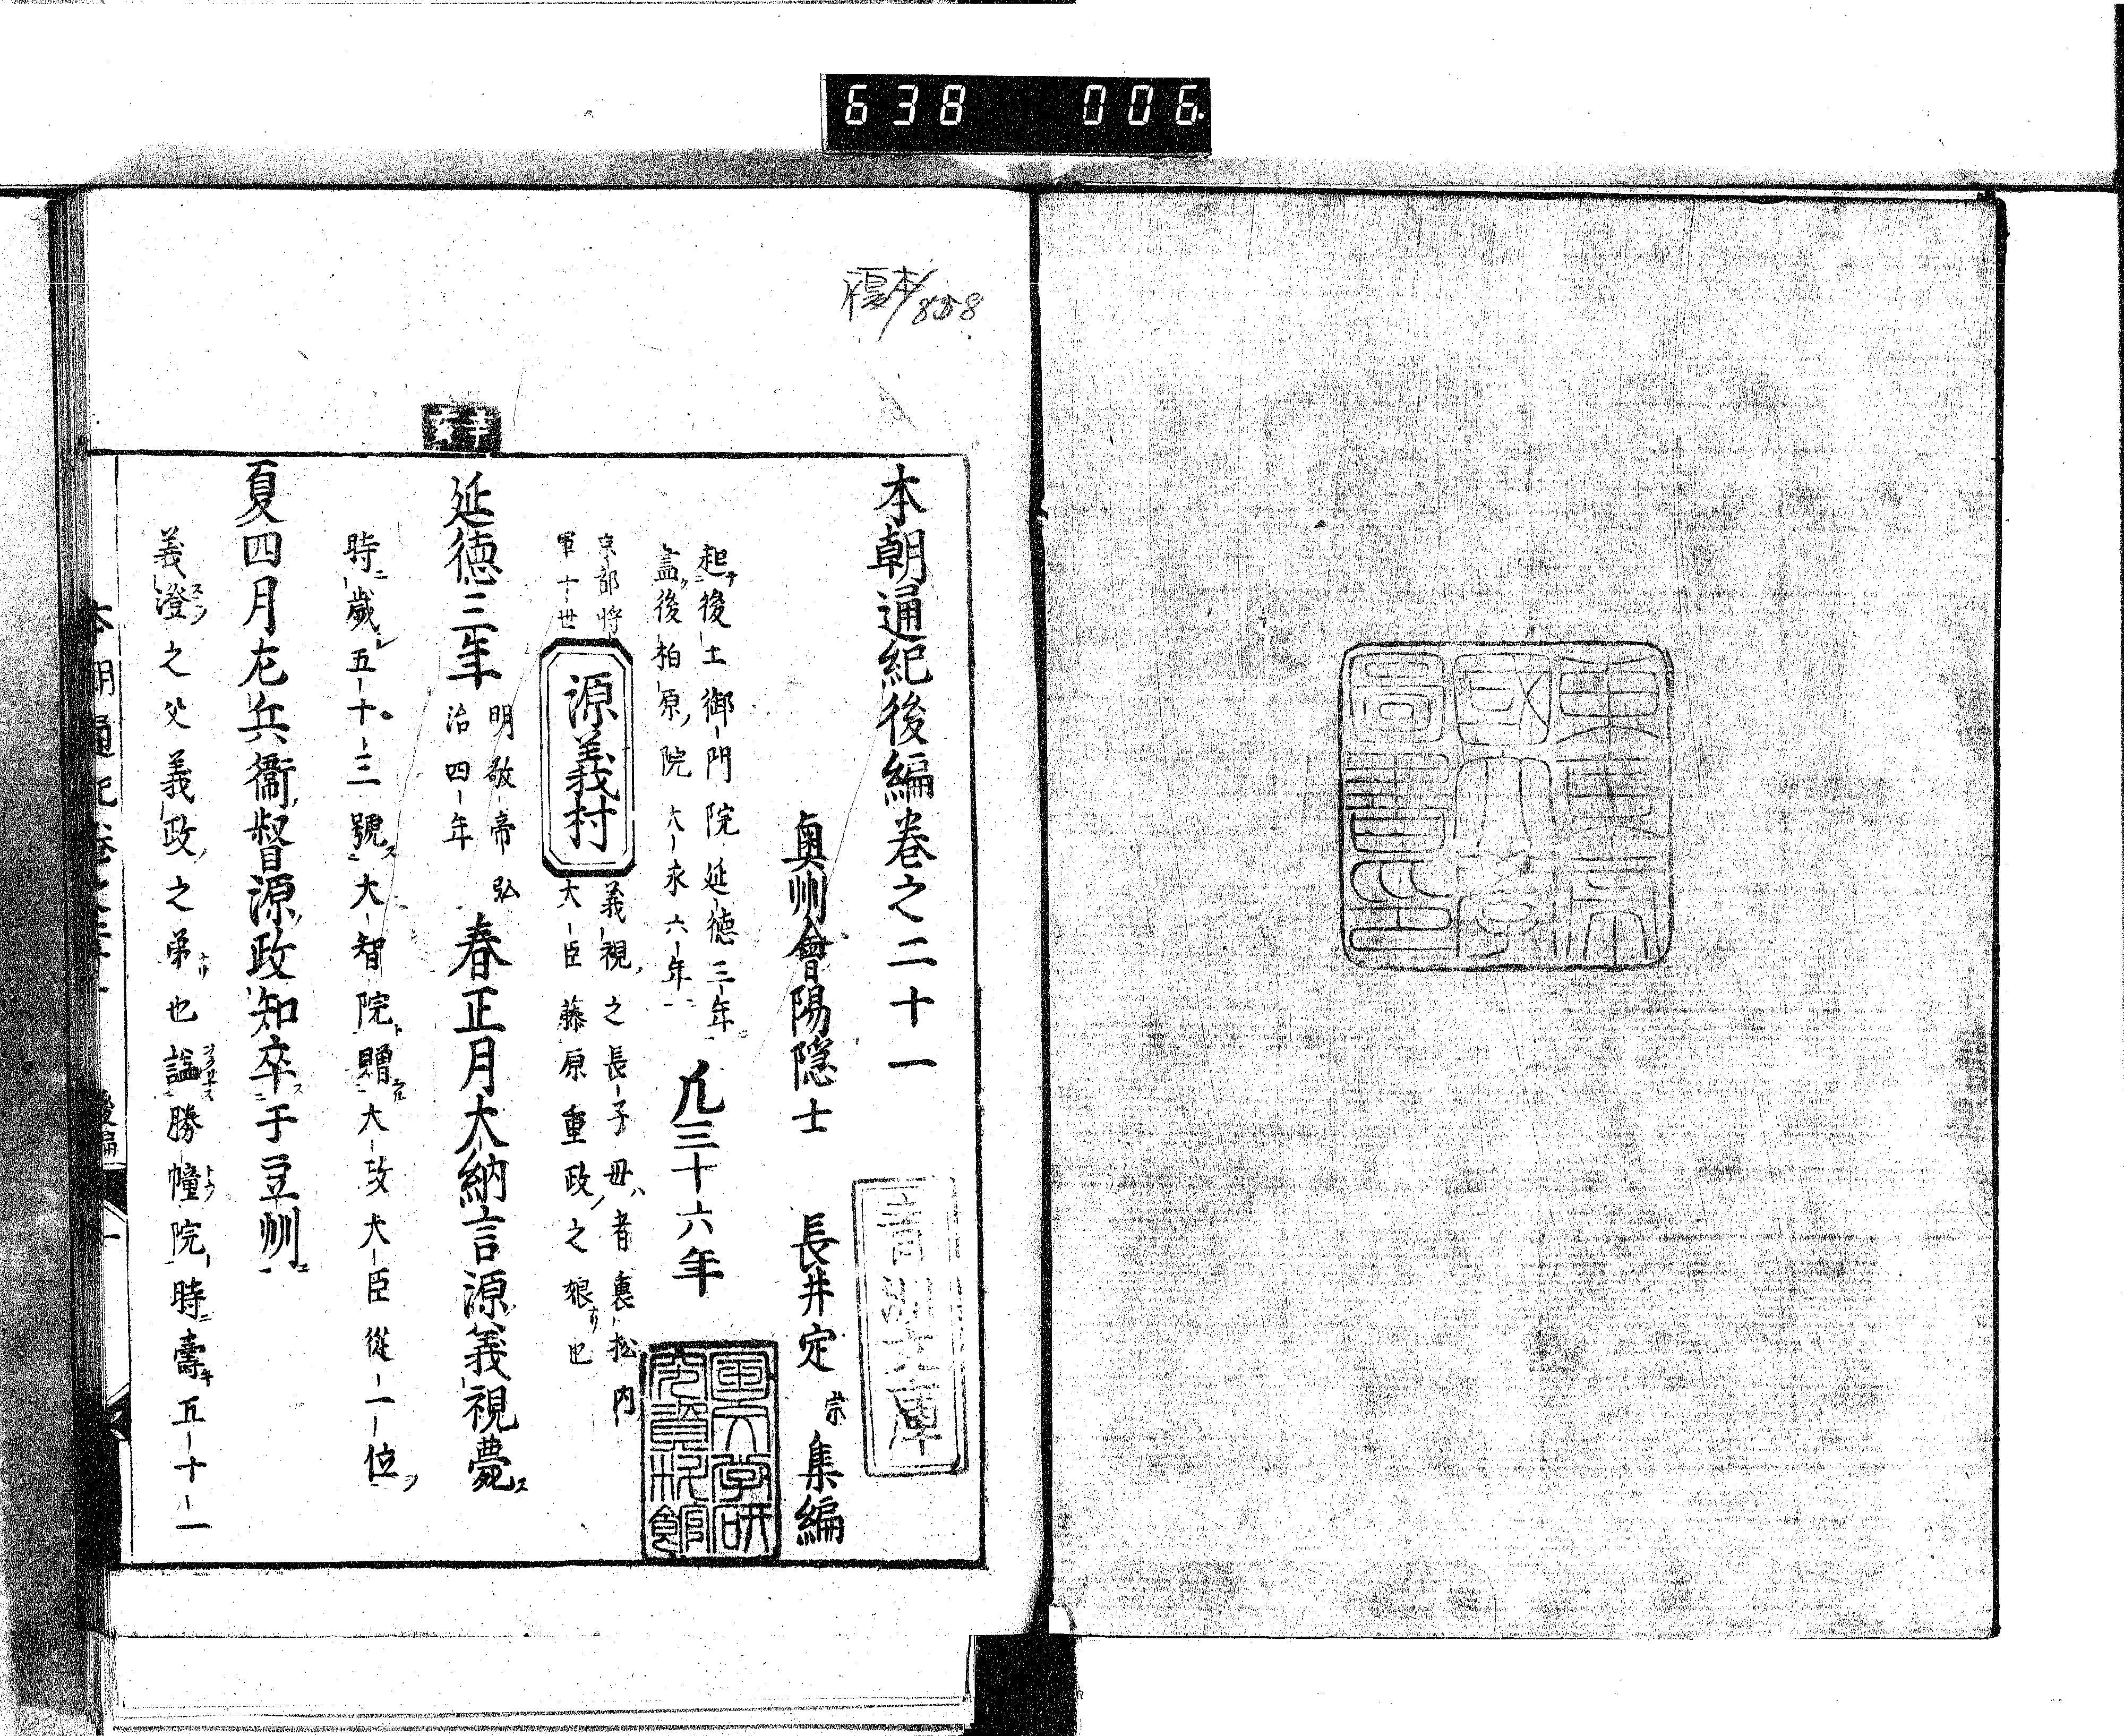 638 006
東京帝
國大學
圖書印
複本/858
本朝通紀後編巻之二十一
青洲文庫
奥州會陽隱士 長井定宗集編
起後土御門院延德三年
盡後柏原院大永六年
凡三十六年
京都將
軍十世
源義村
義視之長子母ハ者裏松内
大臣藤原重政之娘ナリ也
辛亥
延德三年
明敬帝弘
治四年
春正月大納言源義視薨ス
時ニ歲五十三號ス大智院ト贈ラル大政大臣從一位ヲ
夏四月左兵衞督源政知卒ス于豆州ニ
義澄之父義政之弟ナリ也謚勝幢院時ニ壽キ五十一
本朝通紀巻之二十一 後編 一